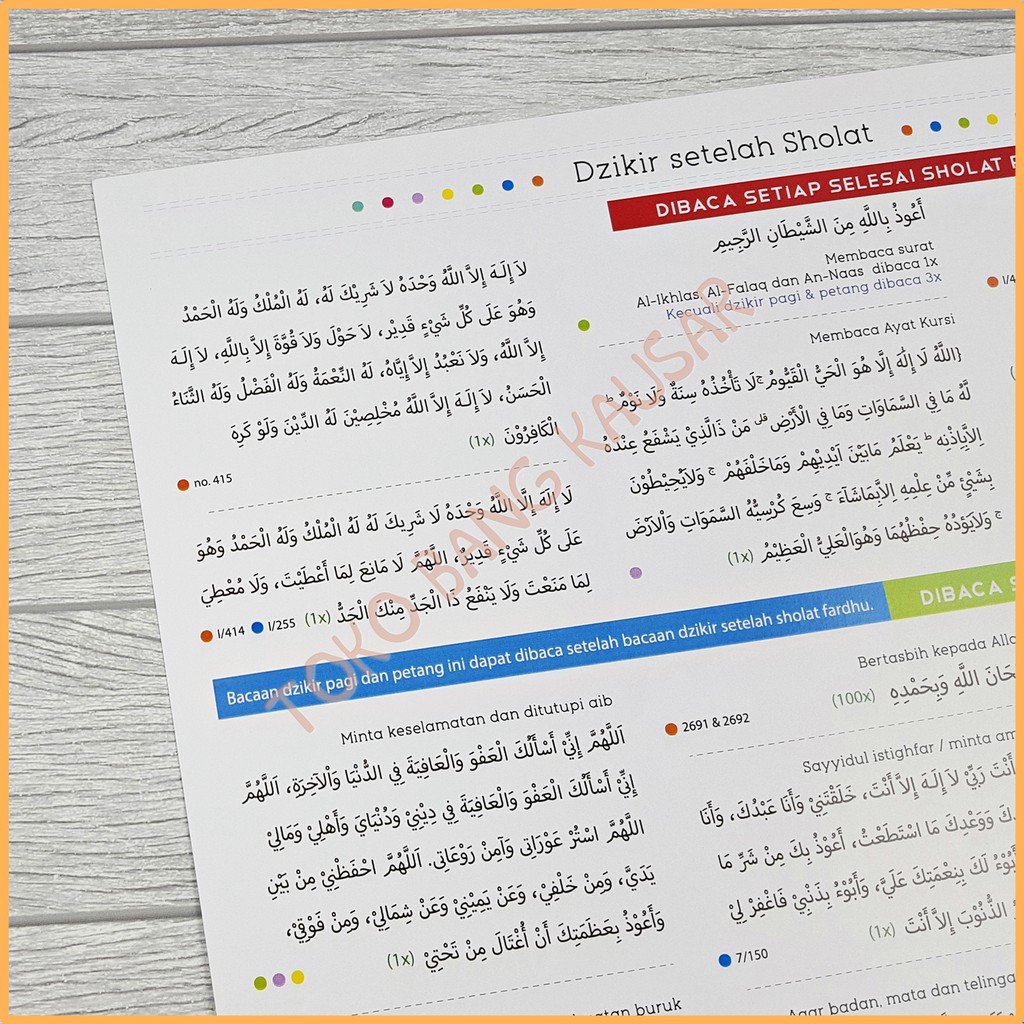 Dzikir setelah Sholat
DIBACA SETIAP SELESAI SHOLAT
أَعُوذُ بِاللَّهِ مِنَ الشَّيْطَانِ الرَّجِيمِ
Membaca surat
Al-Ikhlas, Al-Falaq dan An-Naas dibaca 1x
Kecuali dzikir pagi & petang dibaca 3x
Membaca Ayat Kursi
{اللَّهُ لَا إِلَٰهَ إِلَّا هُوَ الْحَيُّ الْقَيُّومُ ۚ لَا تَأْخُذُهُ سِنَةٌ وَلَا نَوْمٌ ۗ
لَّهُ مَا فِي السَّمَاوَاتِ وَمَا فِي الْأَرْضِ ۗ مَنْ ذَالَّذِيْ يَشْفَعُ عِنْدَهُ
اِلاَّبِاِذْنِه ۗ يَعْلَمُ مَابَيْنَ اَيْدِيْهِمْ وَمَاخَلْفَهُمْ ۚ وَلاَيُحِيْطُوْنَ
بِشَيْئٍ مِّنْ عِلْمِهِ اِلاَّبِمَاشَآءَ ۚ وَسِعَ كُرْسِيُّهُ السَّمَوَاتِ وَاْلاَرْضَ
ۚ وَلاَيَؤُدُهُ حِفْظُهُمَا وَهُوَالْعَلِيُّ الْعَظِيْمُ (1x)
لاَ إِلَهَ إِلاَّ اللَّهُ وَحْدَهُ لاَ شَرِيْكَ لَهُ، لَهُ الْمُلْكُ وَلَهُ الْحَمْدُ
وَهُوَ عَلَى كُلِّ شَيْءٍ قَدِيْر، لاَ حَوْلَ وَلاَ قُوَّةَ إِلاَّ بِاللَّهِ، لاَ إِلَهَ
إِلاَّ اللَّهُ، وَلاَ نَعْبُدُ إِلاَّ إِيَّاهُ، لَهُ النِّعْمَةُ وَلَهُ الْفَضْلُ وَلَهُ الثَّنَاءُ
الْحَسَنُ، لاَ إِلَهَ إِلاَّ اللَّهُ مُخْلِصِيْنَ لَهُ الدِّيْنَ وَلَوْ كَرِهَ
الْكَافِرُوْنَ (1x)
no. 415
لَا إِلَهَ إِلَّا اللَّهُ وَحْدَهُ لَا شَرِيكَ لَهُ لَهُ الْمُلْكُ وَلَهُ الْحَمْدُ وَهُوَ
عَلَى كُلِّ شَيْءٍ قَدِيرٌ، اللَّهُمَّ لَا مَانِعَ لِمَا أَعْطَيْتَ، وَلَا مُعْطِيَ
لِمَا مَنَعْتَ وَلَا يَنْفَعُ ذَا الْجَدِّ مِنْكَ الْجَدُّ (1x)
I/414 I/255
Bacaan dzikir pagi dan petang ini dapat dibaca setelah bacaan dzikir setelah sholat fardhu.
DIBACA
Minta keselamatan dan ditutupi aib
اَللَّهُمَّ إِنِّيْ أَسْأَلُكَ الْعَفْوَ وَالْعَافِيَةَ فِي الدُّنْيَا وَالْآخِرَةِ، اَللَّهُمَّ
إِنِّيْ أَسْأَلُكَ الْعَفْوَ وَالْعَافِيَةَ فِي دِيْنِيْ وَدُنْيَايَ وَأَهْلِيْ وَمَالِيْ
اللَّهُمَّ اسْتُرْ عَوْرَاتِى وَآمِنْ رَوْعَاتِى. اَللَّهُمَّ احْفَظْنِيْ مِنْ بَيْنِ
يَدَيَّ، وَمِنْ خَلْفِيْ، وَعَنْ يَمِيْنِيْ وَعَنْ شِمَالِيْ، وَمِنْ فَوْقِيْ،
وَأَعُوْذُ بِعَظَمَتِكَ أَنْ أُغْتَالَ مِنْ تَحْتِيْ (1x)
Bertasbih kepada
اللَّهِ وَبِحَمْدِهِ (100x)
2691 & 2692
Sayyidul istighfar / minta
أَنْتَ رَبِّيْ لاَ إِلَهَ إِلاَّ أَنْتَ، خَلَقْتَنِيْ وَأَنَا عَبْدُكَ، وَأَنَا
وَوَعْدِكَ مَا اسْتَطَعْتُ، أَعُوْذُ بِكَ مِنْ شَرِّ مَا
لَكَ بِنِعْمَتِكَ عَلَيَّ، وَأَبُوْءُ بِذَنْبِيْ فَاغْفِرْ لِيْ
الذُّنُوْبَ إِلاَّ أَنْتَ (1x)
7/150
buruk
Agar badan, mata dan telinga
TOKO BANG KAUSAR